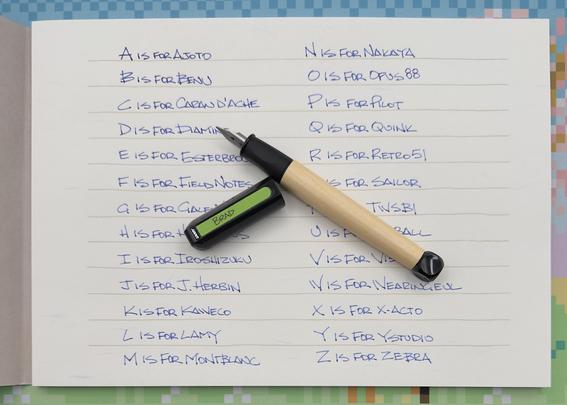 A IS FOR AJOTO
B IS FOR BENU
C IS FOR CARAN D'ACHE
D IS FOR
E IS FOR
F IS FOR FIELD NOTES
G IS FOR
H IS FOR
I IS FOR IROSHIZUKU
J IS FOR J. HERBIN
K IS FOR KAWECO
L IS FOR LAMY
M IS FOR MONTBLANC
N IS FOR NAKAYA
O IS FOR OPUS 88
P IS FOR PILOT
Q IS FOR QUINK
R IS FOR RETRO 51
IS FOR SAILOR
TWSBI
U IS
V IS FOR
W IS FOR NEARINGEUL
X IS FOR X-ACTO
Y IS FOR YSTUDIO
Z IS FOR ZEBRA
BRAD